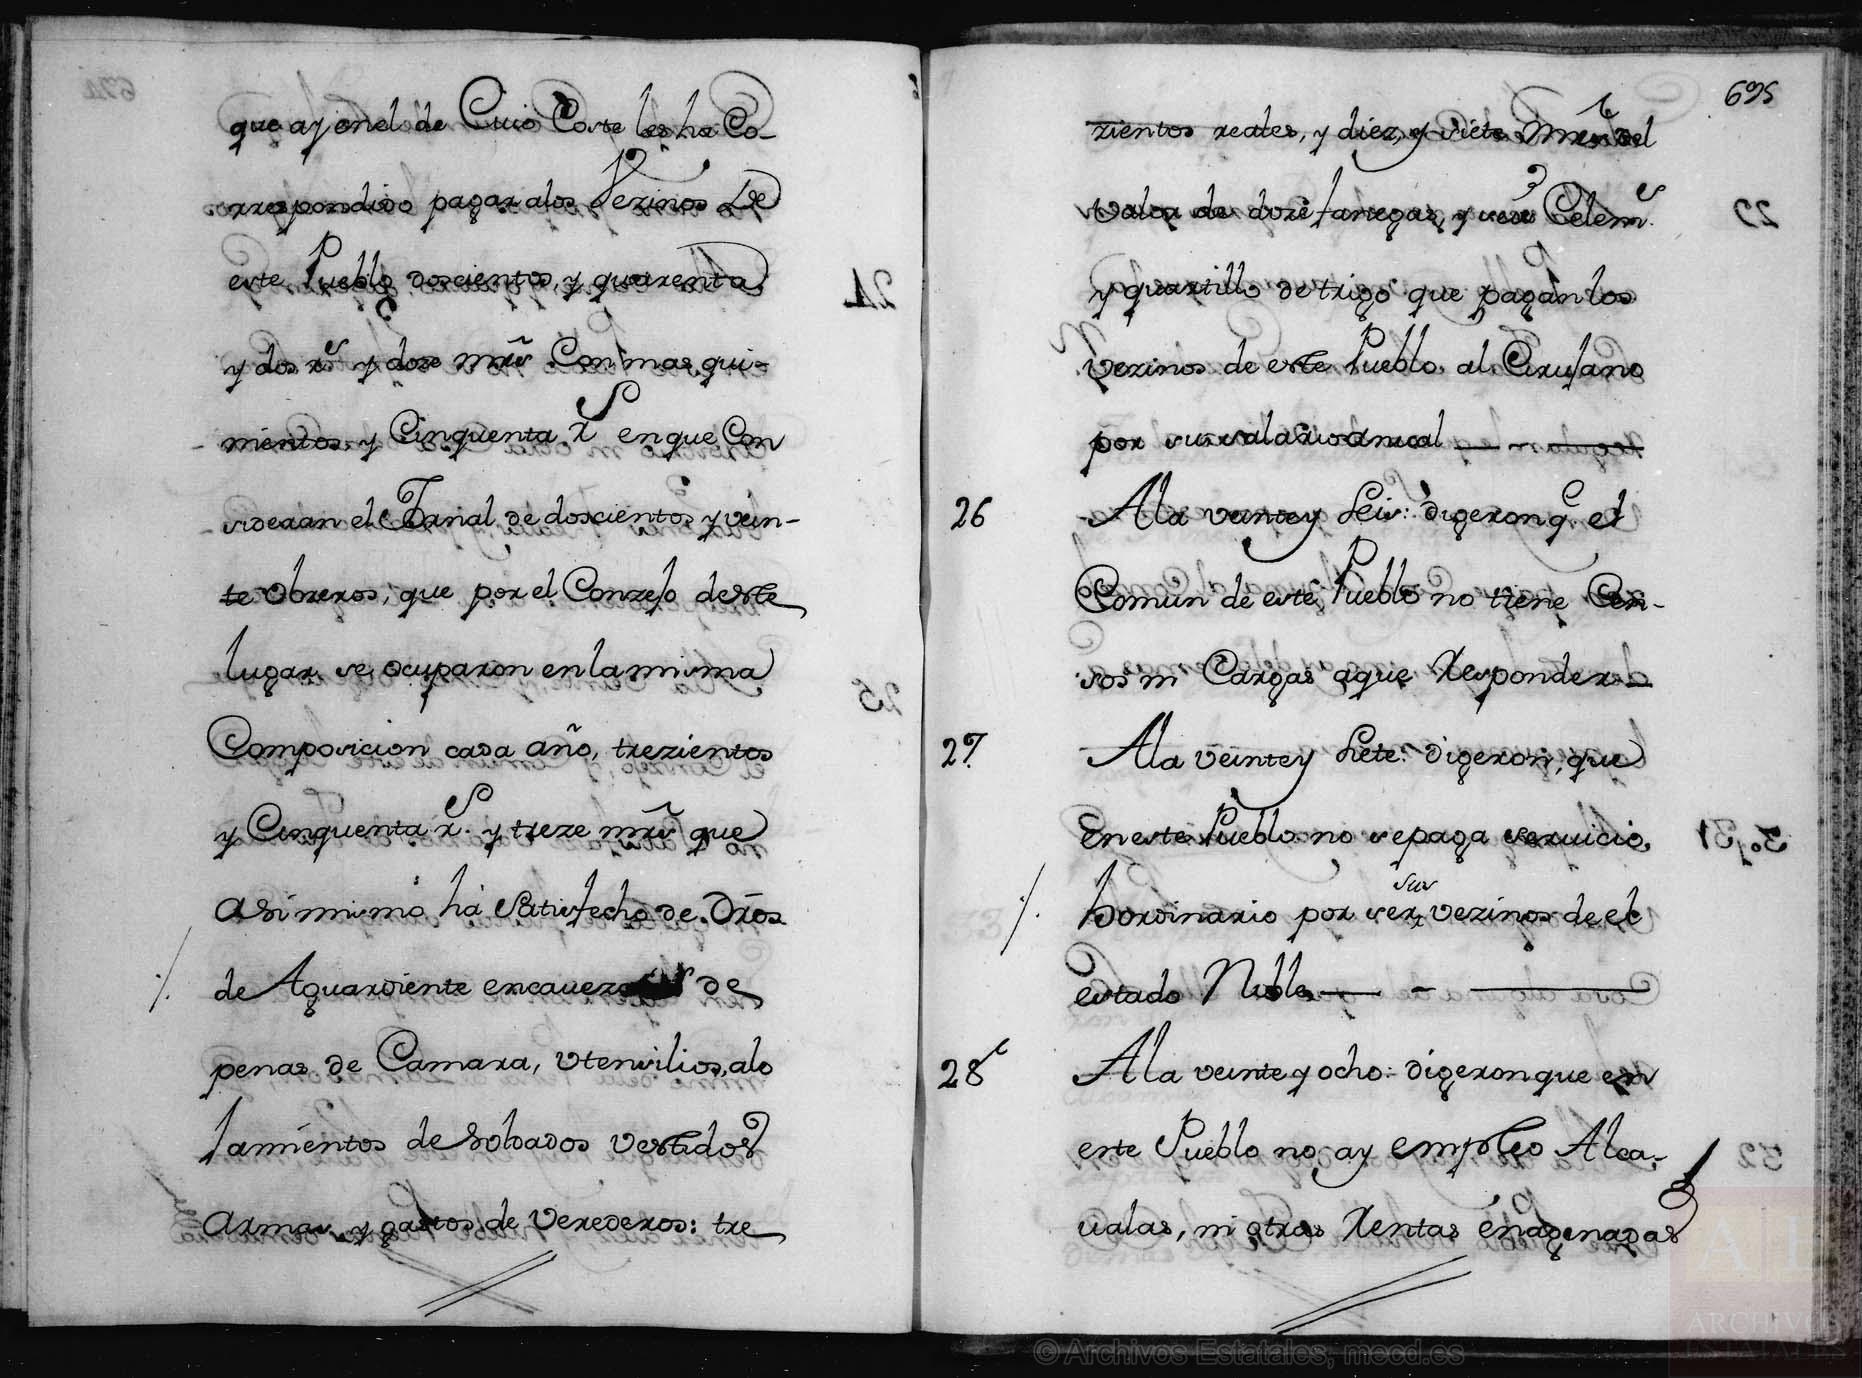 que ay enel de Cuio Coste les ha Co-
rrespondido pagar alos Vezinos De
este Pueblo doscientos, y quarenta
y dos rs y doze mrs Con mas qui-
nientos, y Cinquenta rs en que Con
sideran el Jornal de doscientos y vein-
te obreros, que por el Conzejo deste
lugar se ocuparon en la misma
Composicion cada año, trezientos
y Cinquenta rs. y treze mrs que
asi mismo ha Satisfecho de Dros
de Aguardiente encavez de
penas de Camara, Utensilios, alo
Jamientos de Soldados Vestidos
Armas, y gastos de Verederos: tre
695
zientos reales, y diez, y siete mrs del
valor de doze fanegas, y seis Celems.
y quartillo de trigo que pagan los
Vezinos de este Pueblo al Cirujano
por su salario anual
26 A la veinte y Seis: digeron q. el
Comun de este Pueblo no tiene Cen-
sos ni Cargas aque Responder
27. A la veinte y Siete: digeron, que
en este Pueblo no se paga servicio
hordinario por ser sus vezinos de el
estado Noble
28 A la veinte y ocho: digeron que en
este Pueblo no ay empleo Alca-
valas, ni otras Rentas enagenadas
© Archivos Estatales, mecd.es
ARCHIVOS
ESTATALES